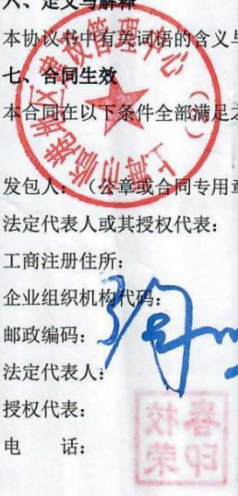 六、定义与解释
本协议书中有关词语的含义与
七、合同生效
本合同在以下条件全部满足之
上海市临港地区建设管理中心
发包人：（公章或合同专用章
法定代表人或其授权代表：
工商注册住所：
企业组织机构代码：
邮政编码：
法定代表人：
授权代表：
电 话：